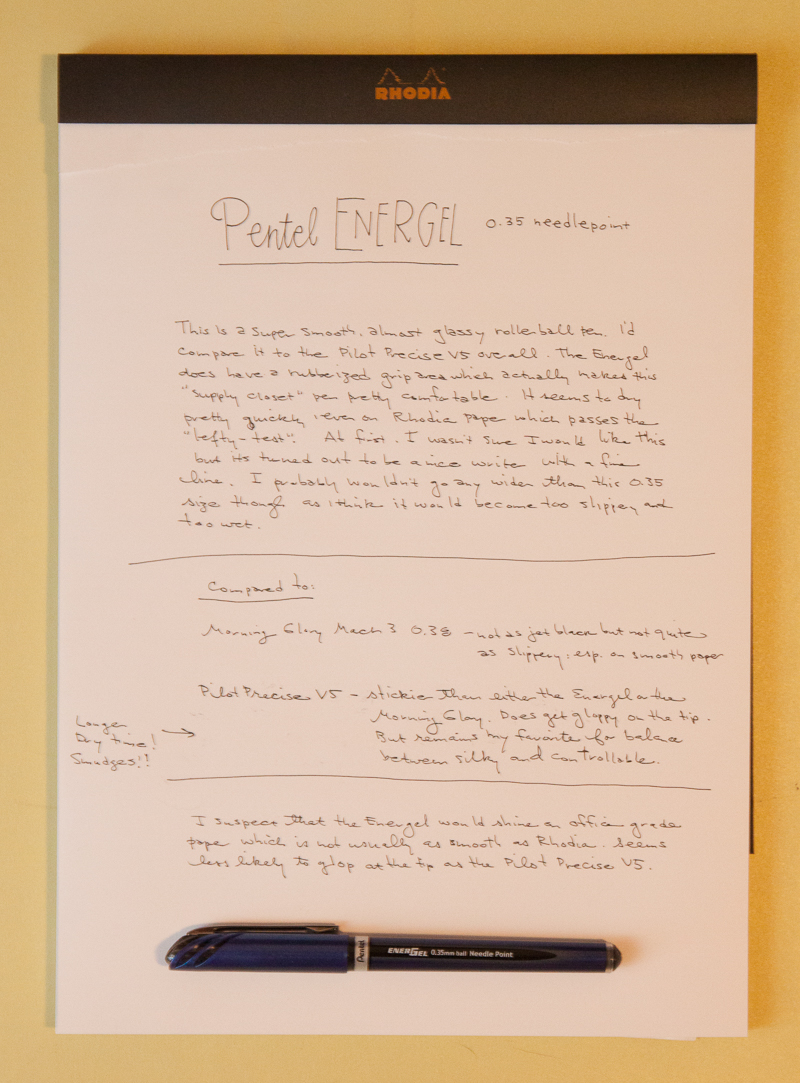 RHODIA
Pentel ENERGEL 0.35 needlepoint
This is a super smooth, almost glassy rollerball pen. I'd
compare it to the Pilot Precise V5 overall. The Energel
does have a rubberized grip area which actually makes this
"supply closet" pen pretty comfortable. It seems to dry
pretty quickly, even on Rhodia paper which passes the
"lefty-test". At first, I wasn't sure I would like this
but its turned out to be a nice write with a fine
line. I probably wouldn't go any wider than this 0.35
size though as i think it would become too slippery and
too wet.
Compared to:
Morning Glory Mach 3 0.38 - not as jet black but not quite
as slippery, esp. on smooth paper
Pilot Precise V5 - stickier than either the Energel or the
Morning Glory. Does get gloppy on the tip.
But remains my favorite for balance
between silky and controllable.
Longer
Dry time!
Smudges!!
I suspect that the Energel would shine on office grade
paper which is not usually as smooth as Rhodia. Seems
less likely to glop at the tip as the Pilot Precise V5.
Pentel
ENERGEL 0.35mm ball Needle Point